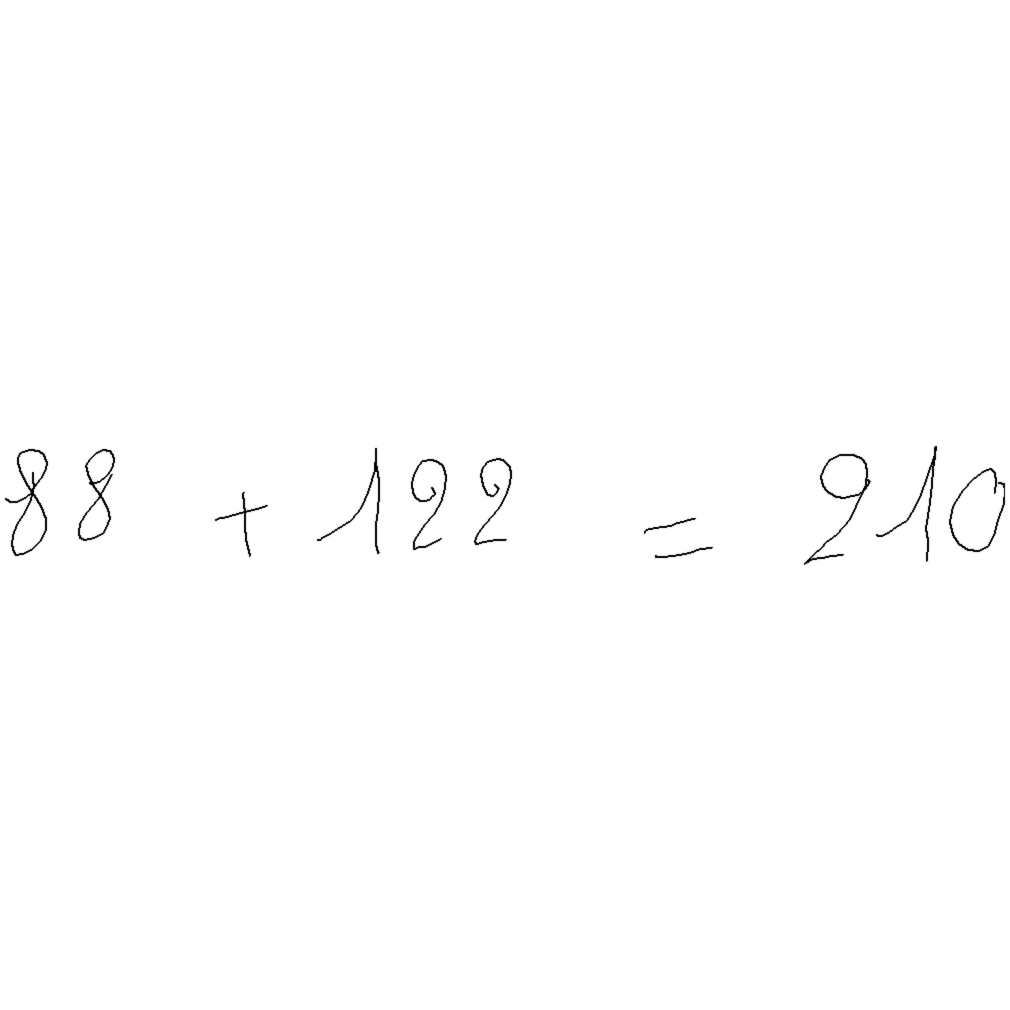 88 + 122 = 210